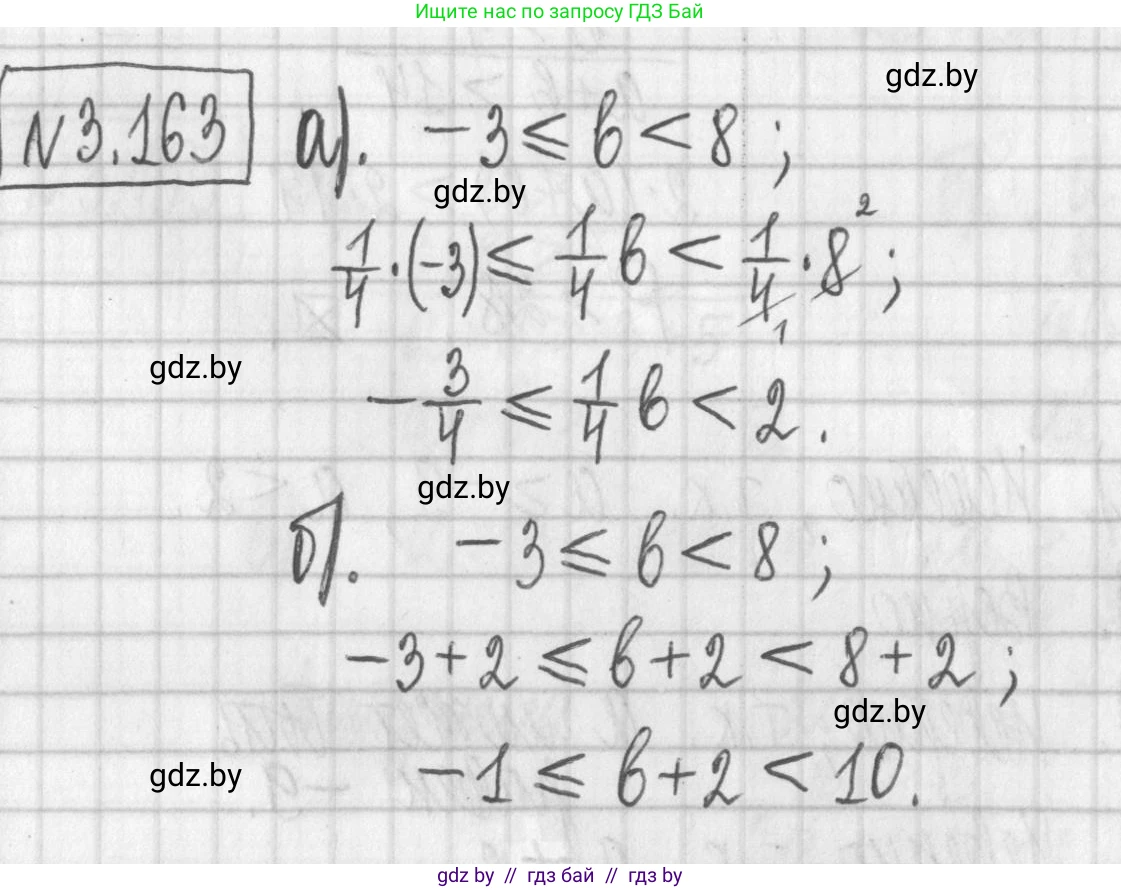 Ищите нас по запросу ГДЗ Бай
gdz.by
N 3.163 а). -3 ≤ в < 8 ;
gdz.by
1/4 · (-3) ≤ 1/4 в < 1/4 · 8 ; 2 1
gdz.by
-3/4 ≤ 1/4 в < 2 .
gdz.by
б). -3 ≤ в < 8 ;
-3 + 2 ≤ в + 2 < 8 + 2 ;
gdz.by
gdz.by
-1 ≤ в + 2 < 10.
gdz by // гдз бай // гдз by